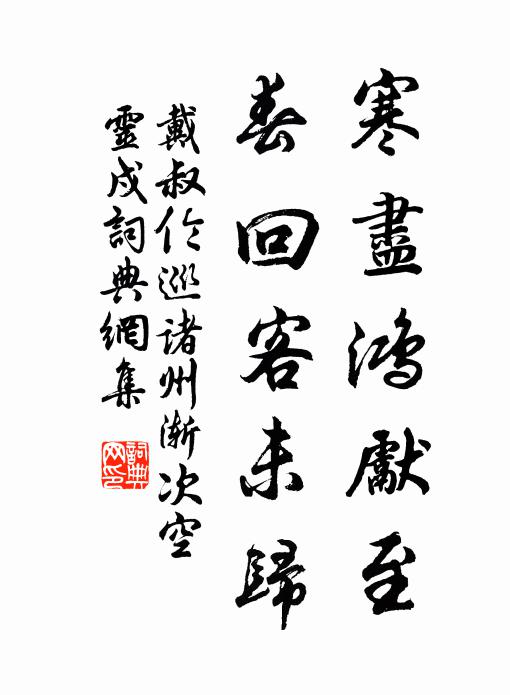 寒盡鴻獻至
春回客未歸
戴叔伦巡諸州漸次空
靈戍詞典網集
詞典网印